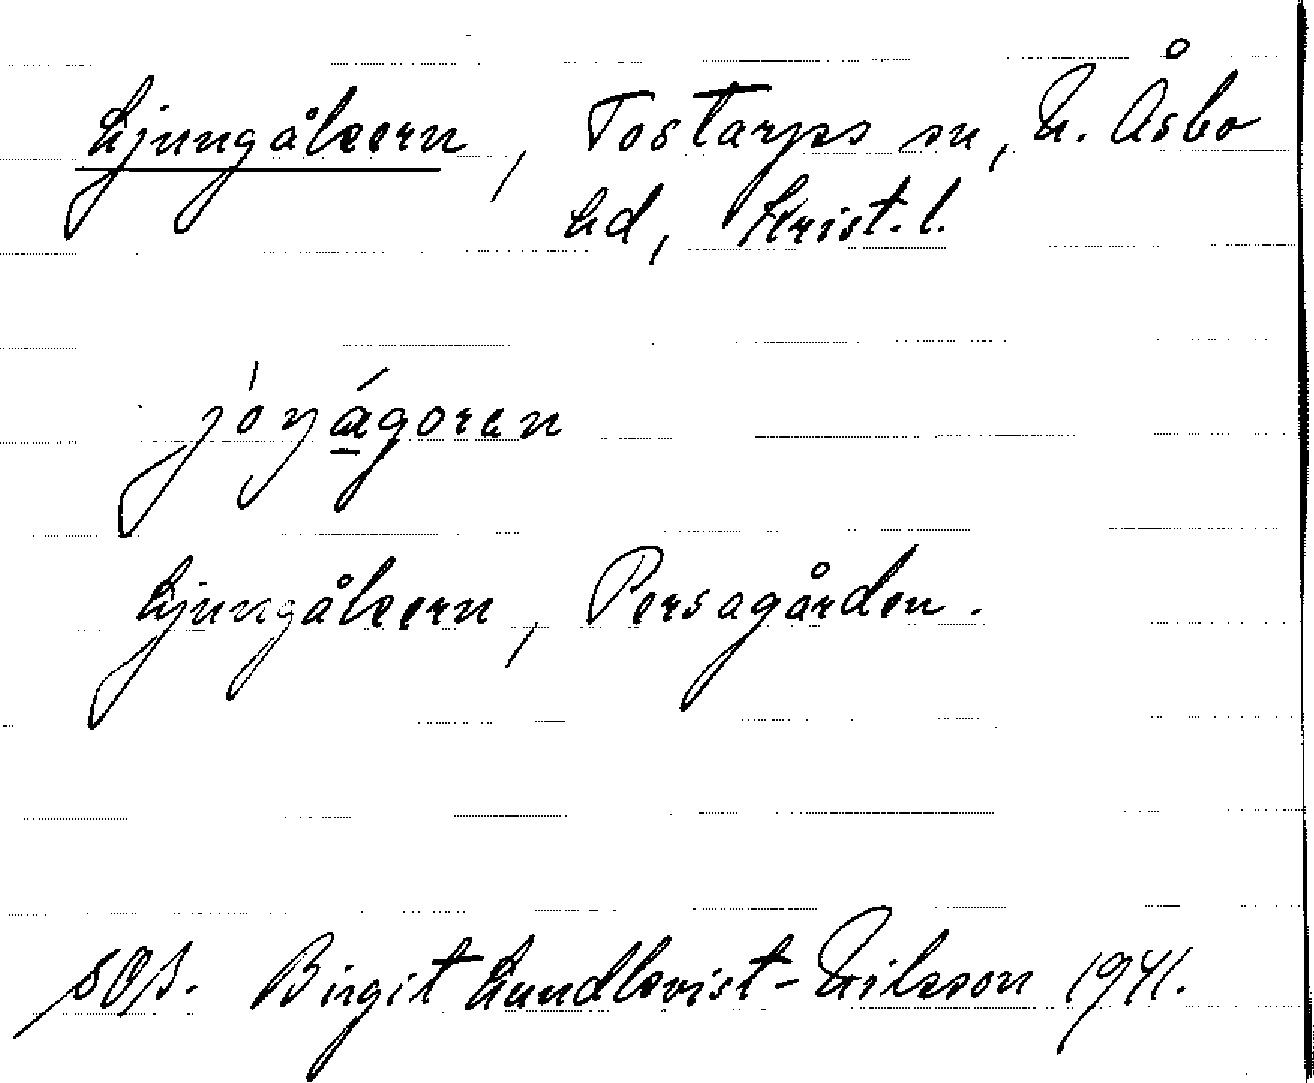 Ljungåkern, Tostarps sn, N. Åsbo
hd, Krist. l.
jóŋágoren
Ljungåkern, Persagården.
Birgit Lundkvist-Nilsson 1941.